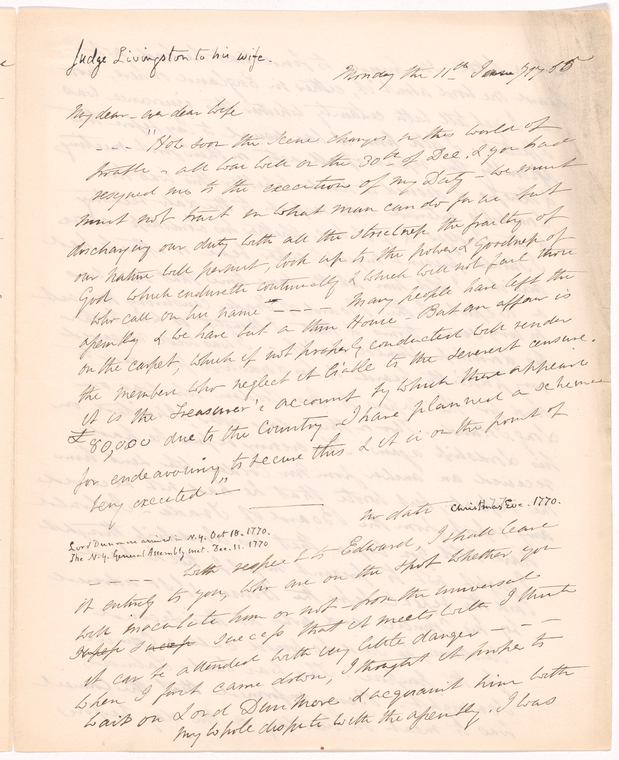 Judge Livingston to his wife.
Monday the 11th 1768
My dear ever dear Wife
- - - "How soon the Scene changes in this world of
trouble - all was well on the 30th of Dec. & you had
resigned me to the execution of my Duty - we must
must not trust in what man can do for us but
discharging our duty with all the strictness the frailty of
our nature will permit, look up to the power & Goodness of
God which endureth continually & which will not fail those
who call on his name - - - - Many people have left the
assembly & we have but a thin House - But an affair is
on the carpet, which if not properly conducted will render
the members who neglect it liable to the severest censure.
it is the Treasurer's account by which there appears
£80,000 due to the Country. I have planned a scheme
for endeavouring to secure this & it is on the point of
being executed -"
no date Christmas Eve. 1770.
Lord Dunmore arrived in N.Y. Oct 18. 1770.
The N.Y. General Assembly met. Dec. 11. 1770
- - - - with respect to Edward, I shall leave
it entirely to you, who are on the spot whether you
will inoculate him or not - from the universal
success that it meets with I think
it can be attended with very little danger - - -
When I first came down, I thought it proper to
wait on Lord Dunmore & acquaint him with
my whole dispute with the assembly. I was